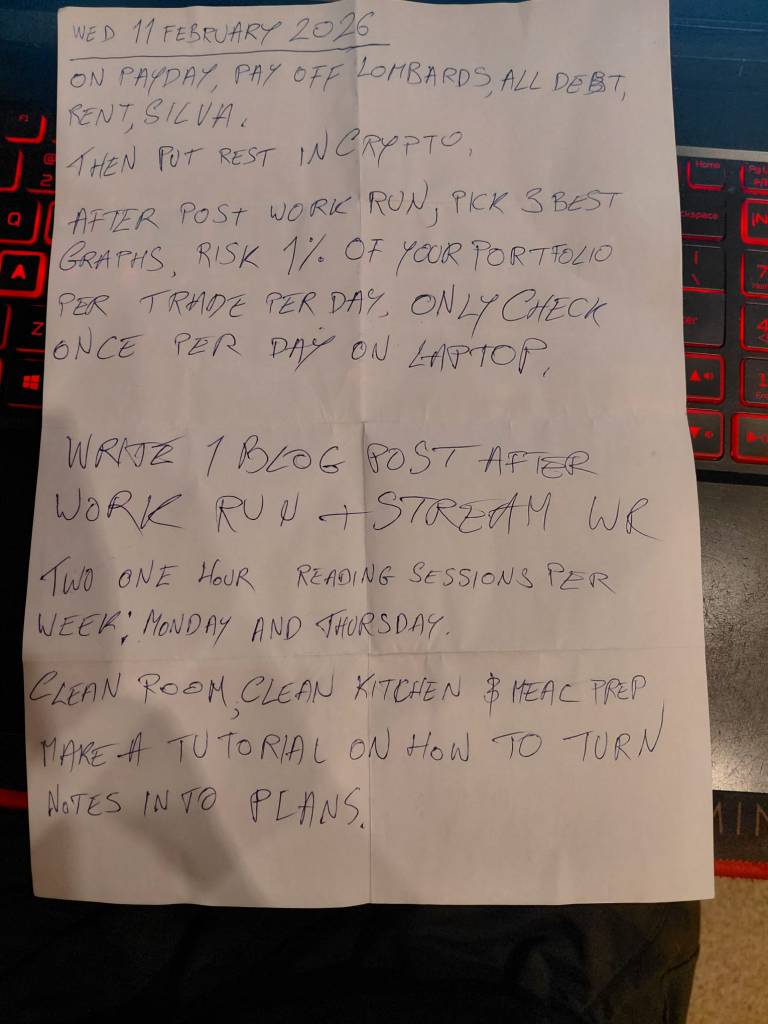 WED 11 FEBRUARY 2026
ON PAYDAY, PAY OFF LOMBARDS, ALL DEBT,
RENT, SILVA.
THEN PUT REST IN CRYPTO.
AFTER POST WORK RUN, PICK 3 BEST
GRAPHS, RISK 1% OF YOUR PORTFOLIO
PER TRADE PER DAY. ONLY CHECK
ONCE PER DAY ON LAPTOP.
WRITE 1 BLOG POST AFTER
WORK RUN + STREAM WR
TWO ONE HOUR READING SESSIONS PER
WEEK: MONDAY AND THURSDAY.
CLEAN ROOM, CLEAN KITCHEN & MEAL PREP
MAKE A TUTORIAL ON HOW TO TURN
NOTES INTO PLANS.
F1
@
2
Q
A
Z
Home
Pg U